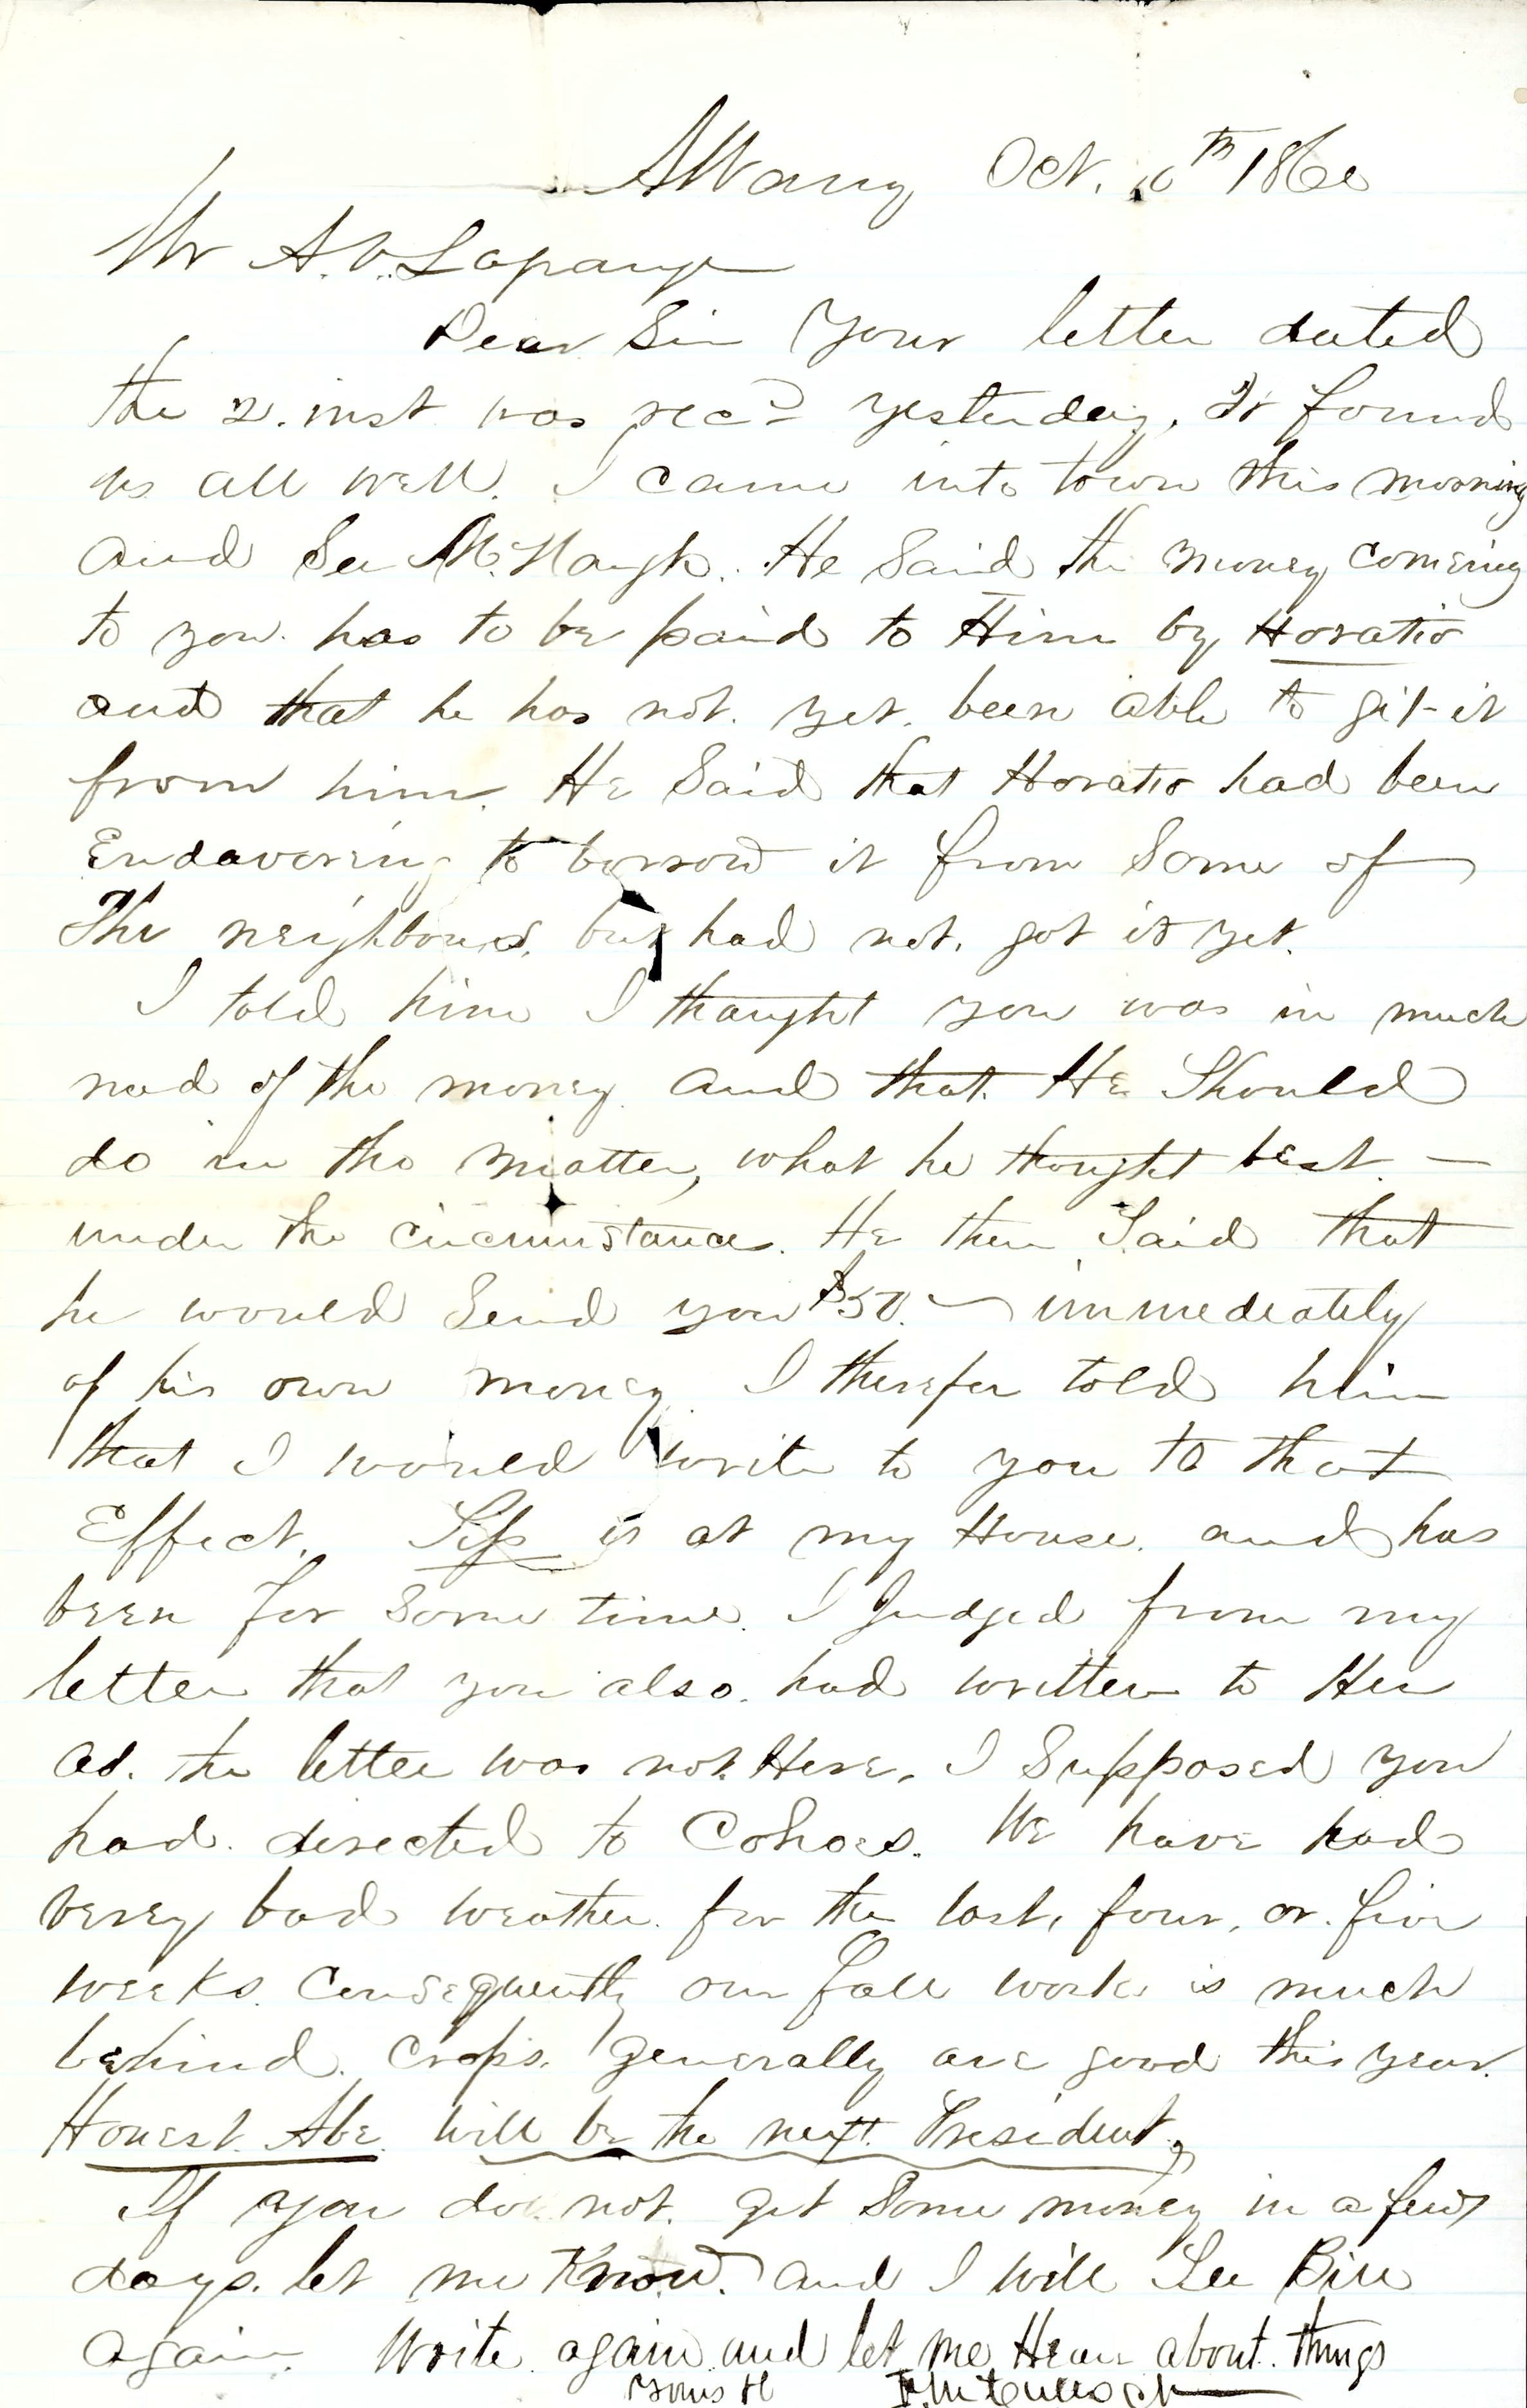 Albany Oct. 10th 1860
Mr A.V. Lapaugh
Dear Sir Your letter dated
the 2. inst was recd yesterday. It found
us all well. I came into town this morning
and See McNaugh. He Said the money comeing
to you. has to be paid to Him by Horatio
and that he has not. yet. been able to git it
from him. He Said that Horatio had been
Endavoring to borrow it from Some of
The neighbours. but had not. got it yet.
I told him I thaught you was in much
need of the money and that. He Should
do in the matter, what he thought best. —
under the circumstances. He then Said that
he would Send you $50. — immedeately
of his own money I therefor told him
that I would write to you to that
Effect. Sip is at my House. and has
been for Some time. I Judged from my
letter that you also. had written to Her
as. the letter was not. Here. I Supposed you
had. directed to Cohoes. We have had
verey bad weather. for the last, four, or. five
weeks. Consequently our fall work is much
behind. Crops. generally are good this year.
Honest. Abe. will be the next. President.
If you do. not. get Some money in a few
days. let me Know. and I will See Bill
again. Write again and let me Hear about. things
Yours &c